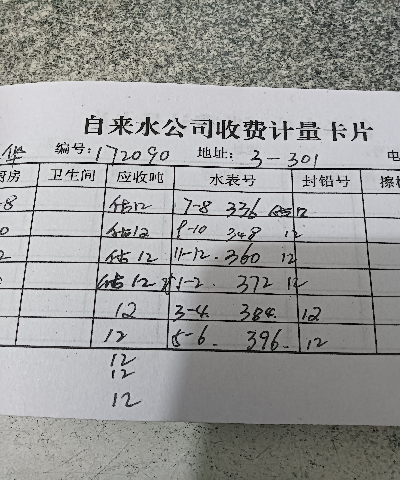 自来水公司收费计量卡片
华 编号:172090 地址:3-301 电
厨房 卫生间 应收吨 水表号 封铅号
8 估12 7-8 336 估12
0 估12 9-10 348 12
2 估12 11-12. 360 12
估12 1-2. 372 12
12 3-4. 384. 12
12 5-6. 396. 12
12
12
12